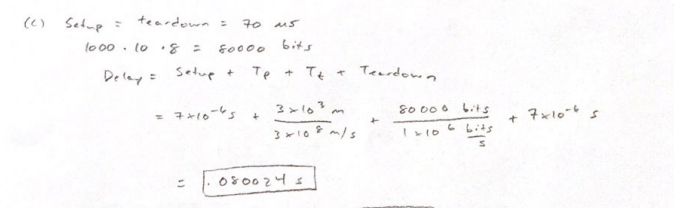 (c) Setup = teardown = 70 ms
1000 · 10 · 8 = 80000 bits
Delay = Setup + Tp + Tt + Teardown
= 7×10^-6 s + 3×10^3 m / 3×10^8 m/s + 80000 bits / 1×10^6 bits/s + 7×10^-6 s
= .080024 s